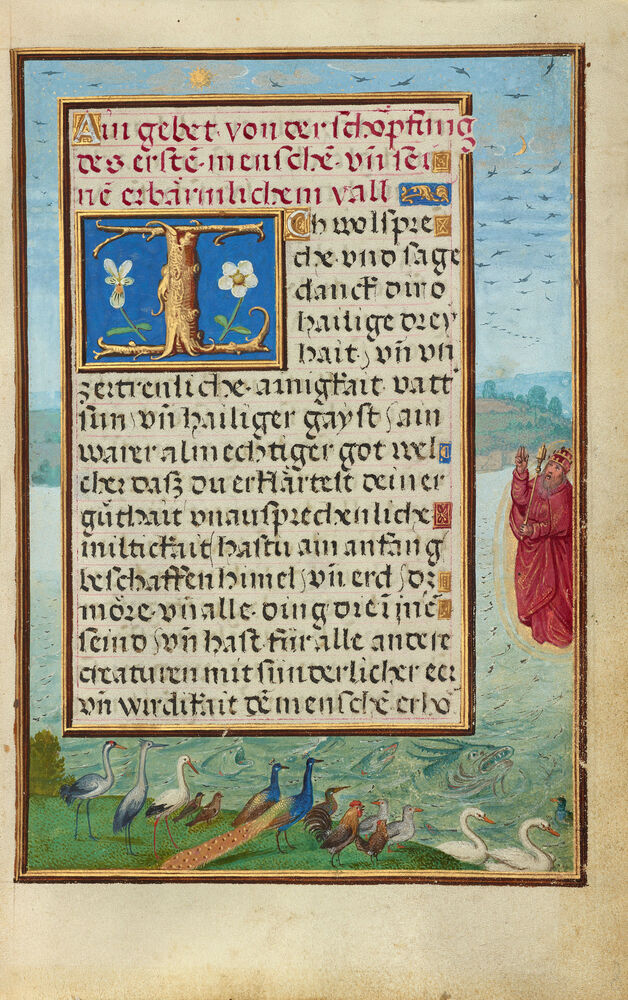 Ain gebet · von der schöpfung
des erstē · menschē · vn̄ sei
nē erbärmlichem vall
Ich wolspre
che vnd sage
danck diro
hailige drey
hait / vn̄ vn
zertrenliche · ainigkait vatt
sun / vn̄ hailiger gayst / ain
warer almechtiger got wel
cher dasz du erklärtest deiner
gůthait vnausprechenliche
miltickait / hastu am anfang
beschaffen himel / vn̄ erd / dz
möre · vn̄ alle ding dreī inē
seind / vn̄ hast für alle andere
creaturen mit sünderlicher eer
vn̄ wirdikait dē menschē · erhö